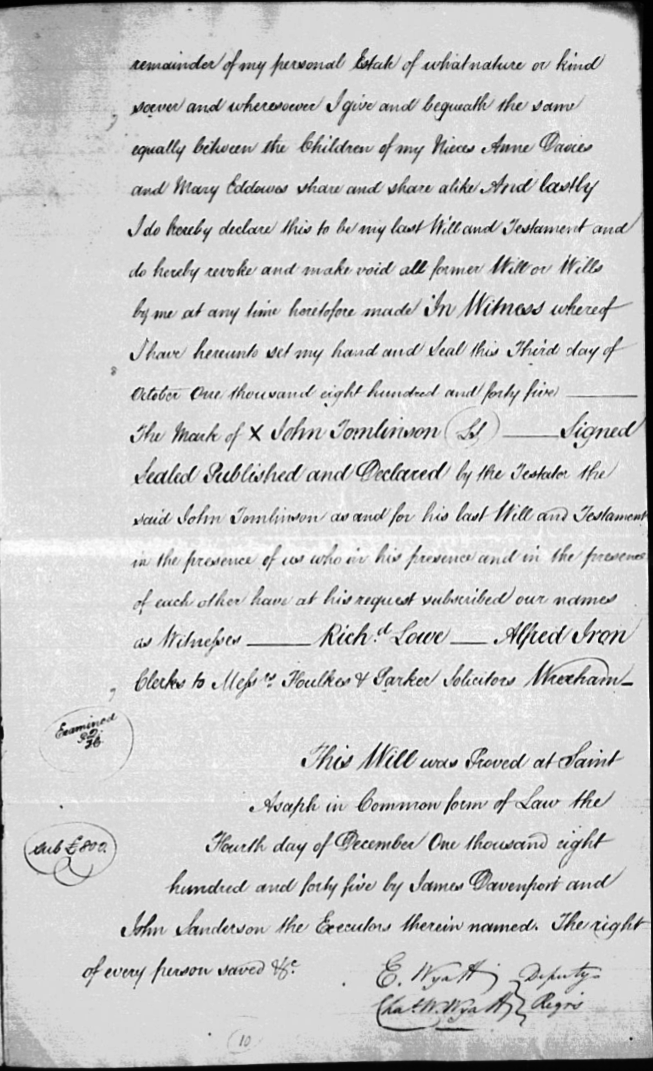 remainder of my personal Estate of what nature or kind
soever and wheresoever I give and bequeath the same
equally between the Children of my Nieces Anne Davies
and Mary Eddowes share and share alike And lastly
I do hereby declare this to be my last Will and Testament and
do hereby revoke and make void all former Will or Wills
by me at any time heretofore made In Witness whereof
I have hereunto set my hand and Seal this Third day of
October One thousand eight hundred and forty five ———
The Mark of X John Tomlinson (LS) ——— Signed
Sealed Published and Declared by the Testator the
said John Tomlinson as and for his last Will and Testament
in the presence of us who in his presence and in the presence
of each other have at his request subscribed our names
as Witnesses ——— Richd. Lowe —— Alfred Iron
Clerks to Messrs. Foulkes & Parker Solicitors Wrexham —
Examined
This Will was Proved at Saint
Asaph in Common form of Law the
Sub £800.
Fourth day of December One thousand eight
hundred and forty five by James Davenport and
John Sanderson the Executors therein named. The right
of every person saved &c.
E. Wyatt } Deputy
Chas. W. Wyatt } Regrs
10